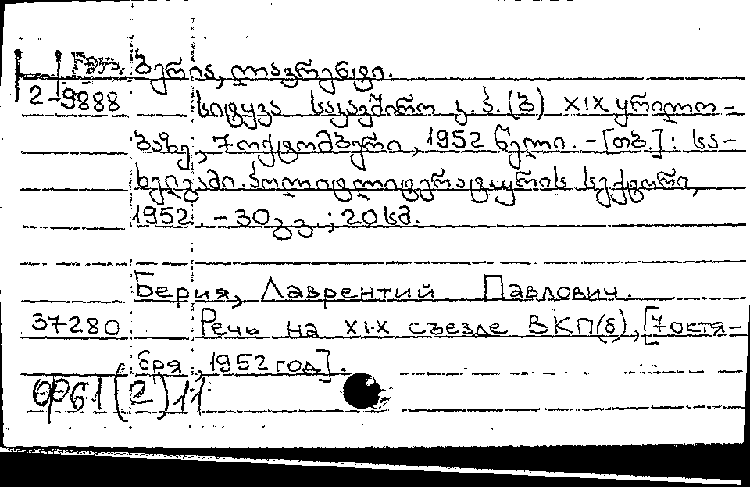 Груз. ბერია, ლავრენტი.
2-9888 სიტყვა საკავშირო კ. პ. (ბ) XIX ყრილო-
ბაზე, 7 ოქტომბერი, 1952 წელი. - [თბ.] : სა-
ხელგამი. პოლიტლიტერატურის სექტორი,
1952. - 30 გვ. ; 20 სმ.
Берия, Лаврентий Павлович.
37280 Речь на XIX съезде ВКП(б), [7 октя-
бря, 1952 год].
(2) 11